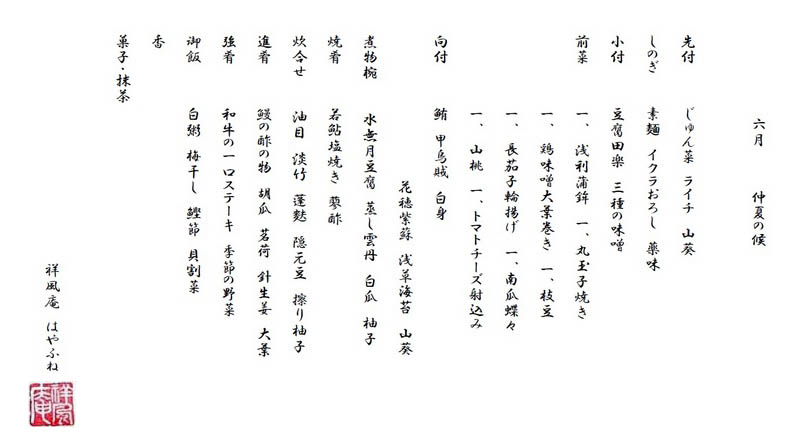 六月　仲夏の候
先付　じゅん菜　ライチ　山葵
しのぎ　素麺　イクラおろし　薬味
小付　豆腐田楽　三種の味噌
前菜　一、浅利蒲鉾　一、丸玉子焼き
一、鶏味噌大葉巻き　一、枝豆
一、長茄子輪揚げ　一、南瓜蝶々
一、山桃　一、トマトチーズ射込み
向付　鮪　甲烏賊　白身
花穂紫蘇　浅草海苔　山葵
煮物椀　水無月豆腐　蒸し雲丹　白瓜　柚子
焼肴　若鮎塩焼き　蓼酢
炊合せ　油目　淡竹　蓬麩　隠元豆　擦り柚子
進肴　鰻の酢の物　胡瓜　茗荷　針生姜　大葉
強肴　和牛の一口ステーキ　季節の野菜
御飯　白粥　梅干し　鰹節　貝割菜
香
菓子・抹茶
祥風庵　はやふね
祥風庵